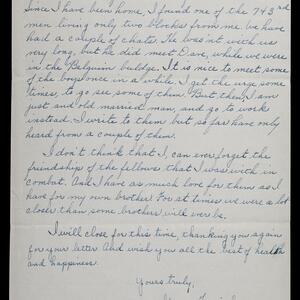 Since I have been home, I found one of the 743rd
men living only two blocks from me. We have
had a couple of chats. He was'nt with us
very long, but he did meet Dave, while we were
in the Belguim buldge. It is nice to meet some
of the boys once in a while. I get the urge some
times, to go see some of them. But then, I am
just and old married man, and go to work
instead. I write to them but so far have only
heard from a couple of them.
I don't think that I, can ever forget the
friendship of the fellows that I was with in
combat. And I have as much love for them as I
have for my own brother. For at times we were a lot
closer than some brothers will ever be.
I will close for this time, thanking you again
for your letter And wish you all the best of health
and happiness.
Yours truly,